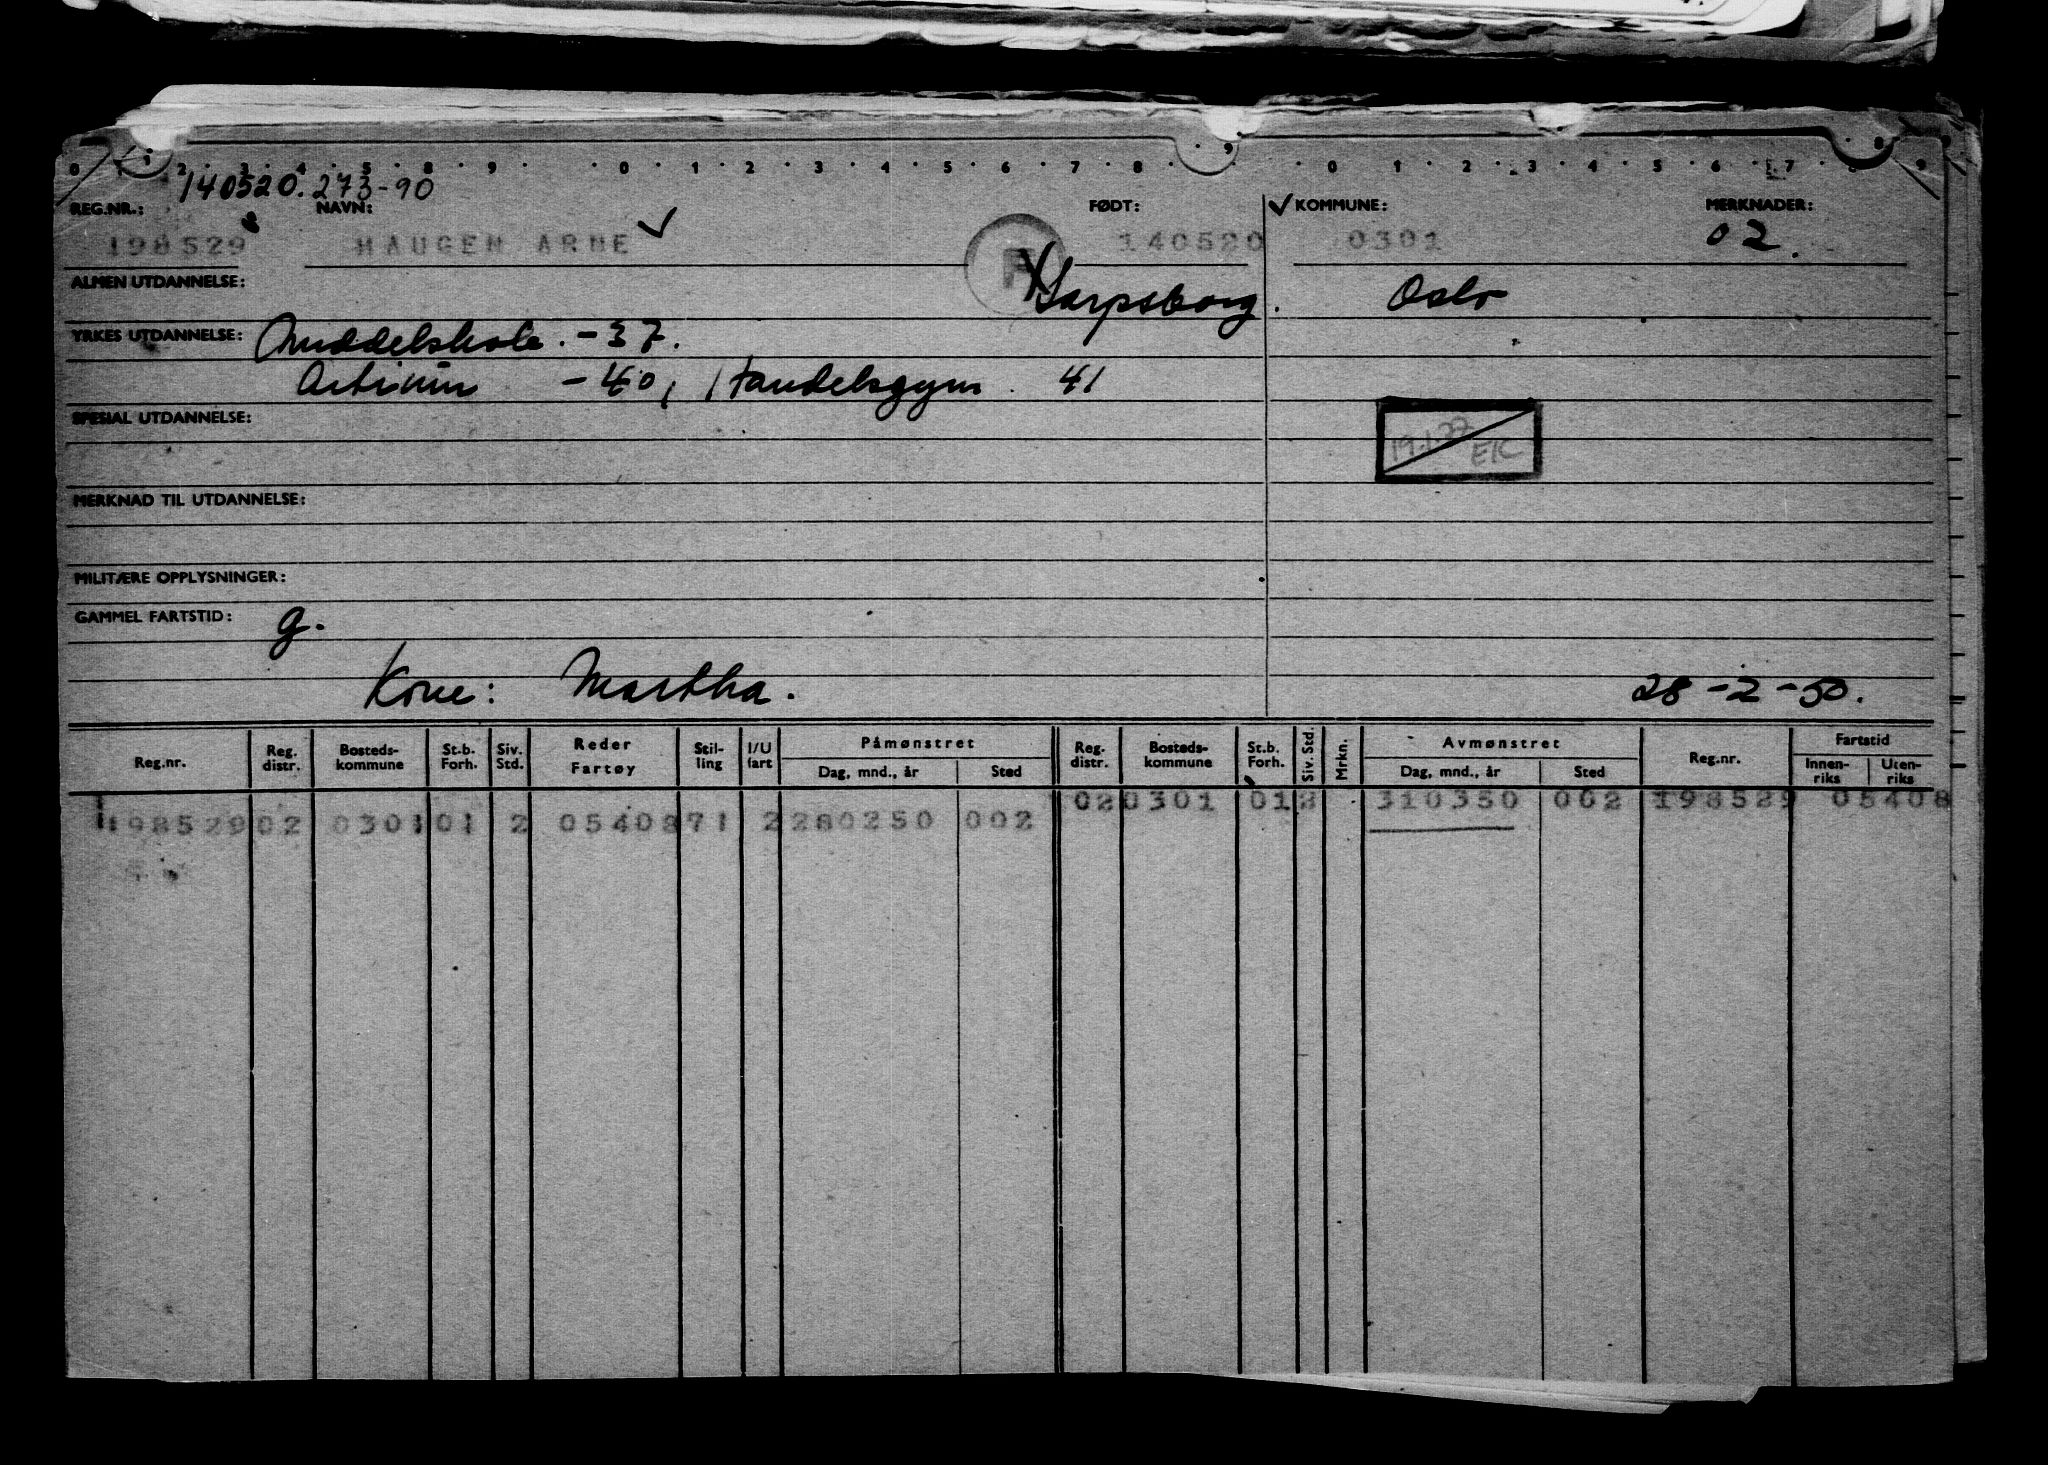 0 1 2 3 4 5 8 9 0 1 2 3 4 5 6 7 8 9 0 1 2 3 4 5 6 7 8 9
140520. 273-90
REG.NR.: NAVN: FØDT: KOMMUNE: MERKNADER:
198529 HAUGEN ARNE 140520 0301 02.
ALMEN UTDANNELSE: Sarpsborg. Oslo
YRKES UTDANNELSE: Middelskole. -37.
Artium -40, Handelsgym. 41
SPESIAL UTDANNELSE:
19.1.77 EK
MERKNAD TIL UTDANNELSE:
MILITÆRE OPPLYSNINGER:
GAMMEL FARTSTID: g.
Kone: Martha. 28-2-50.
Reg.nr. Reg. distr. Bosteds-kommune St.b. Forh. Siv. Std. Reder Fartøy Stil-ling I/U fart Påmønstret Dag, mnd., år Sted Reg. distr. Bosteds-kommune St.b. Forh. Siv. Std. Mrkn. Avmønstret Dag, mnd., år Sted Reg.nr. Fartstid Innen-riks Uten-riks
020301 012 310350 002 198529 05408
198529 02 0301 01 2 05408 71 2 280250 002